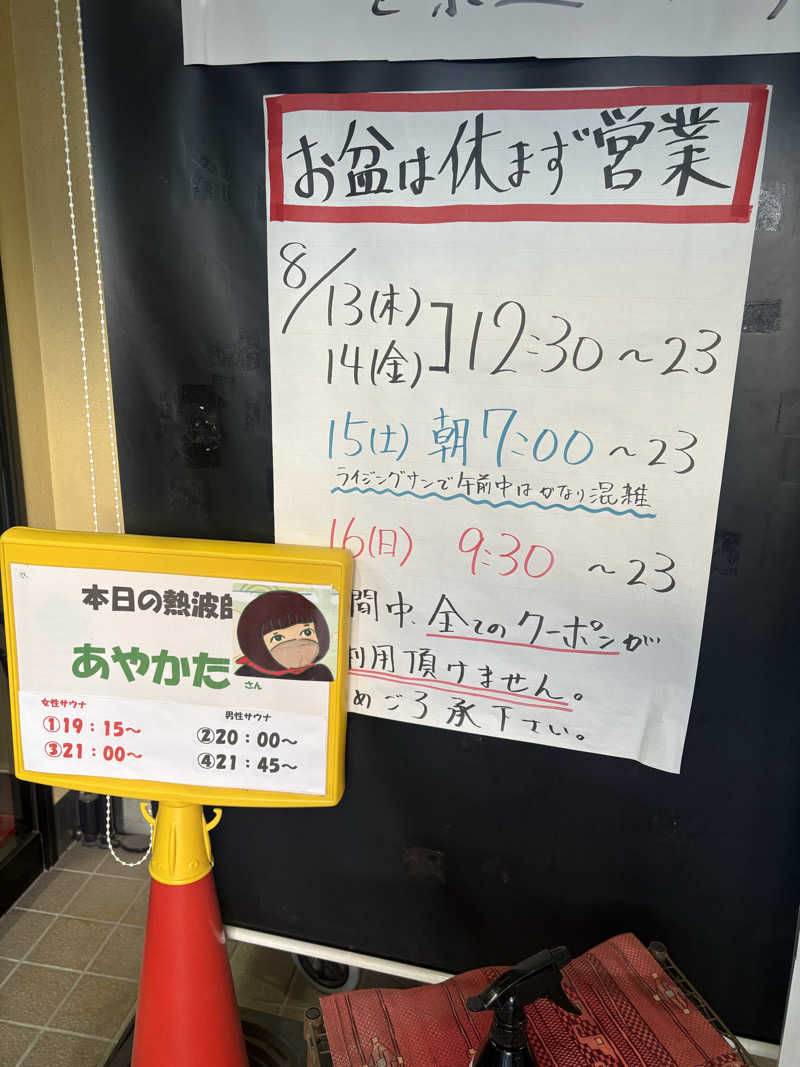 お盆は休まず営業
8/13(木)
14(金)
12:30〜23
15(土) 朝7:00〜23
ライジングサンで午前中はかなり混雑
16(日) 9:30〜23
間中、全てのクーポンが
利用頂けません。
めご了承下さい。
本日の熱波師
あやかた
さん
女性サウナ
①19:15〜
③21:00〜
男性サウナ
②20:00〜
④21:45〜